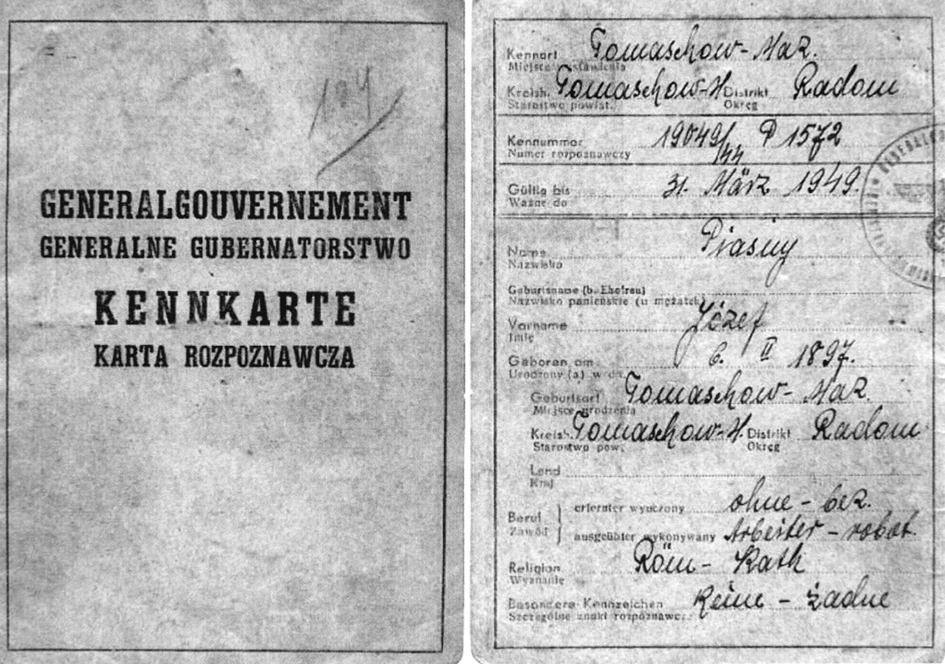 194
GENERALGOUVERNEMENT
GENERALNE GUBERNATORSTWO
KENNKARTE
KARTA ROZPOZNAWCZA
Kennort Tomaschow-Maz.
Miejsce wystawienia
Kreish. Tomaschow-M. Distrikt Radom
Starostwo powiat. Okręg
Kennummer 19049/44 P 1572
Numer rozpoznawczy
Gültig bis 31. März 1949.
Ważne do
Name Piasny
Nazwisko
Geburtsname (b. Ehefrau)
Nazwisko panieńskie (u mężatek)
Vorname Józef
Imię
Geboren am 6. II 1897.
Urodzony (a) w dn.
Geburtsort Tomaschow-Maz.
Miejsce urodzenia
Kreish. Tomaschow-M. Distrikt Radom
Starostwo pow. Okręg
Land
Kraj
Beruf erlernter wyuczony ohne - bez.
Zawód ausgeübter wykonywany Arbeiter - robot.
Religion Röm - Kath
Wyznanie
Besondere Kennzeichen Keine - żadne
Szczególne znaki rozpoznawcz.